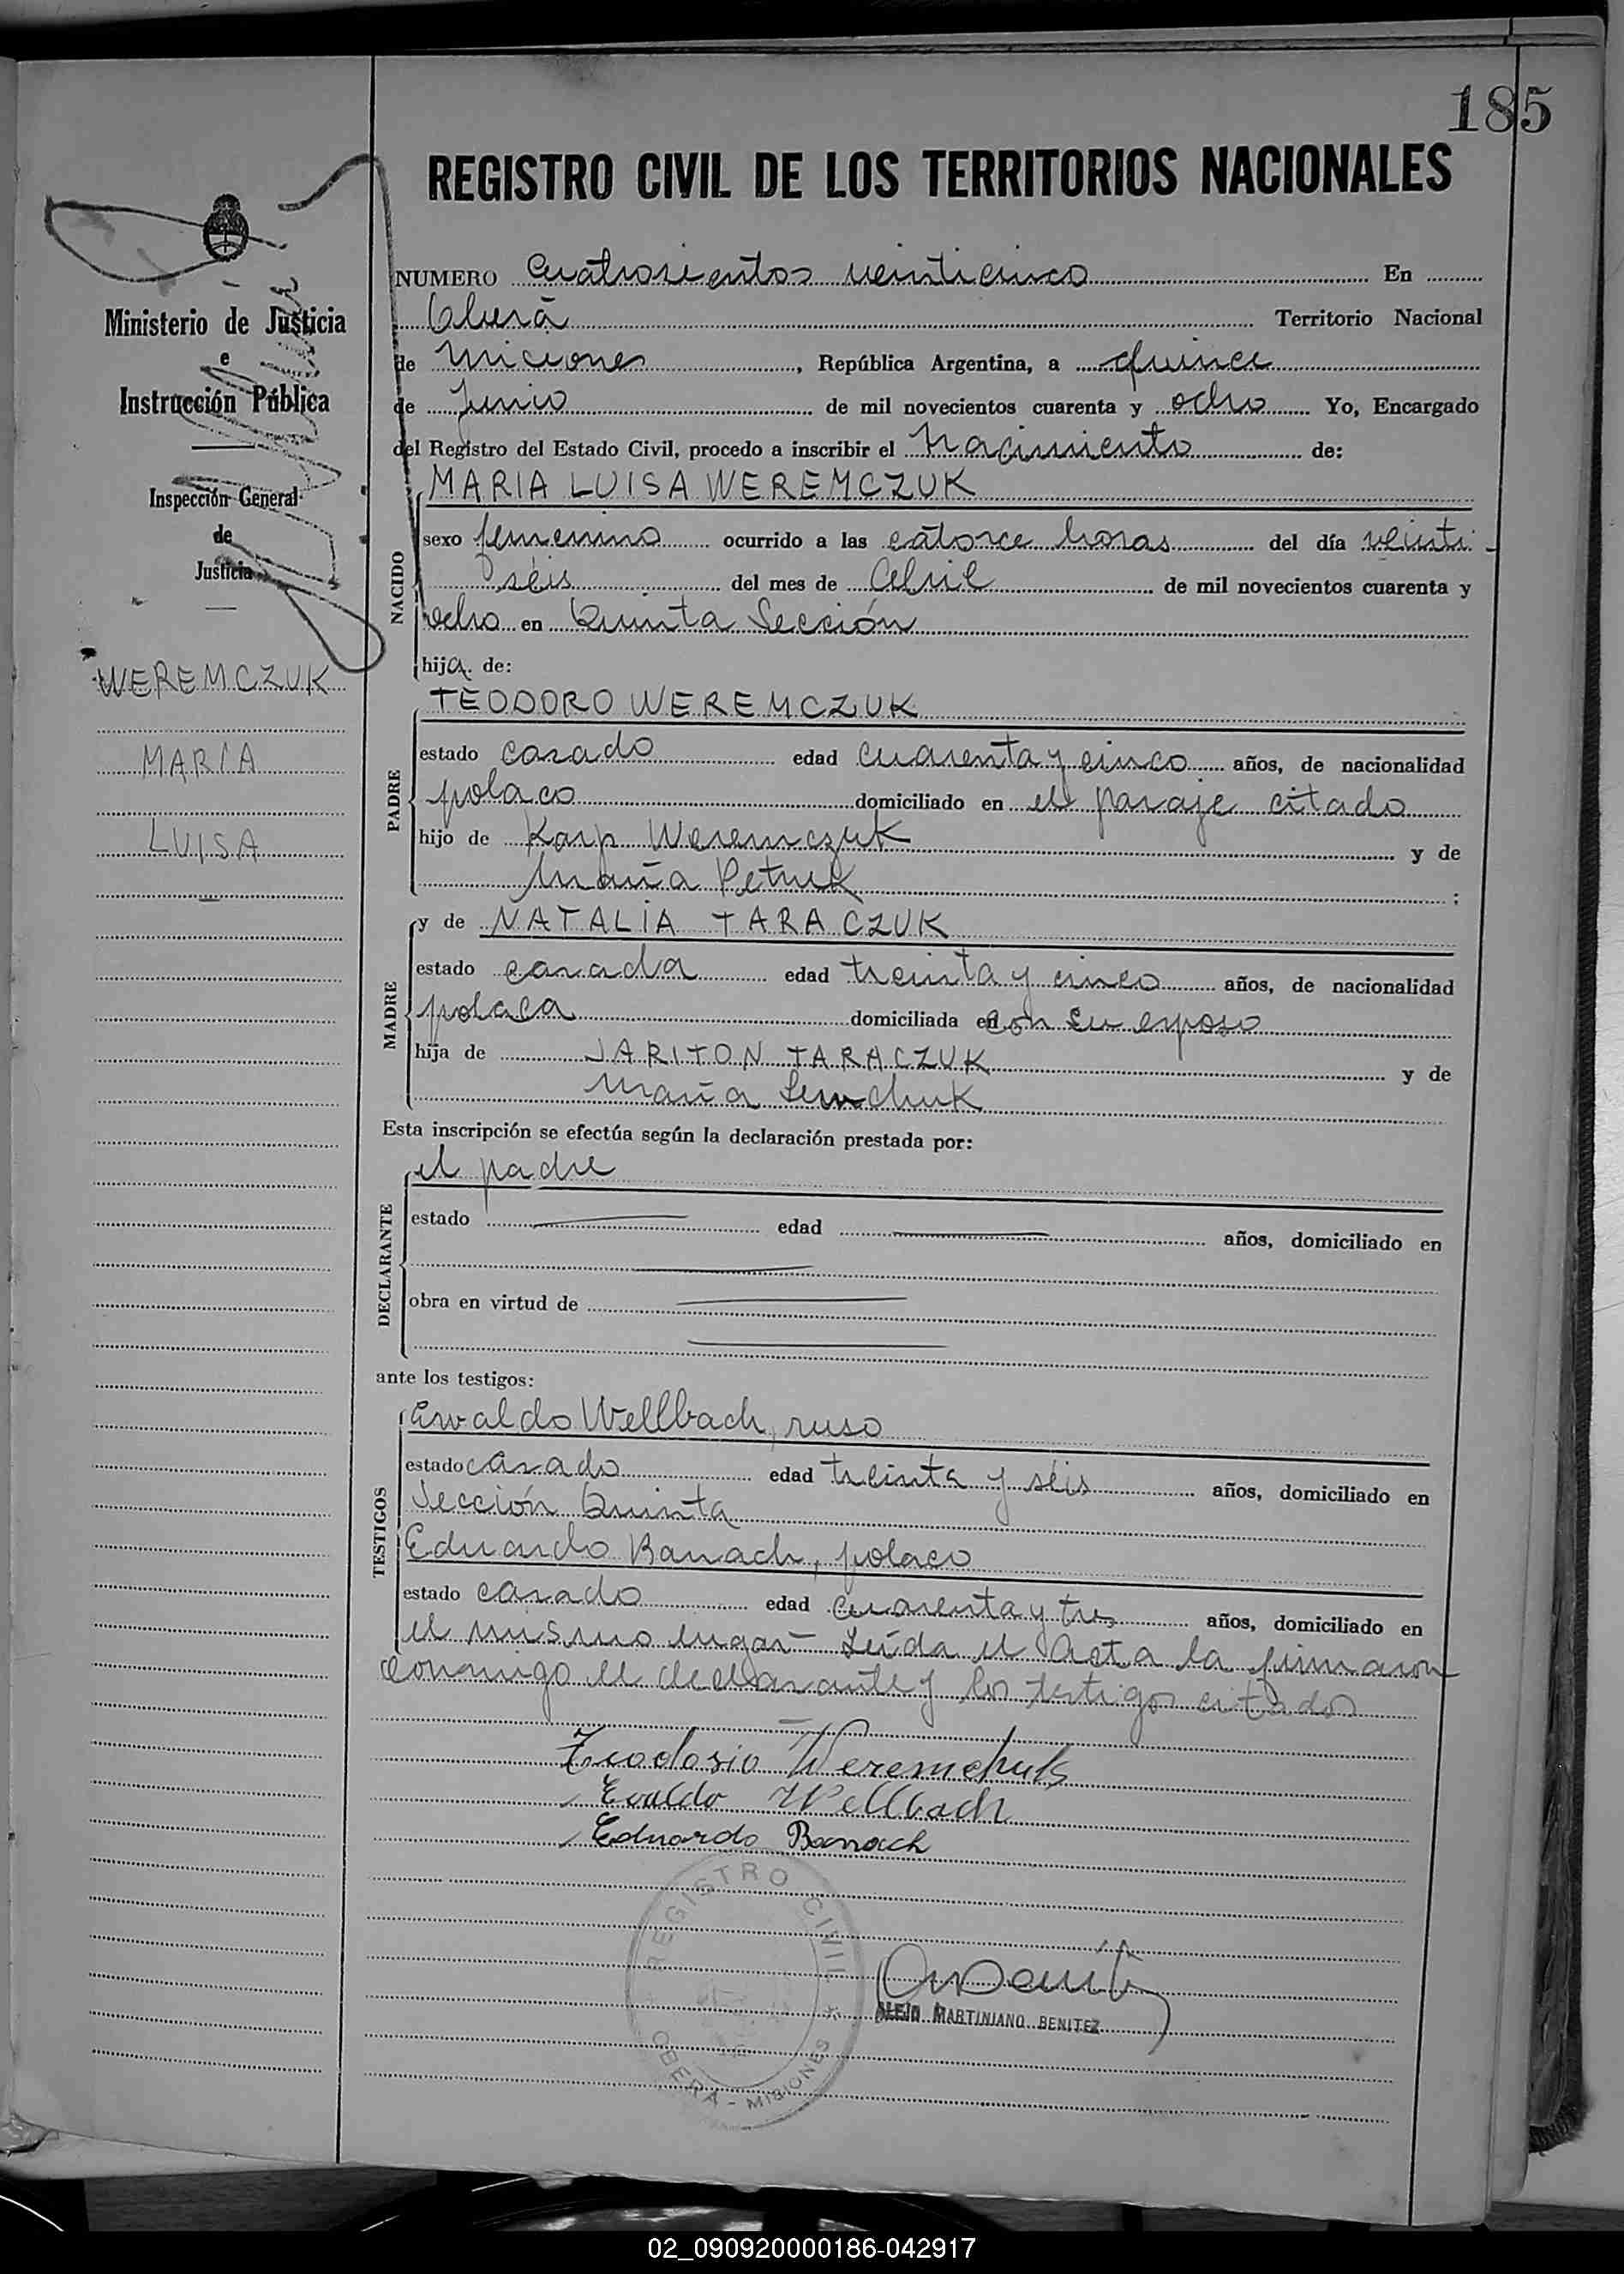 185
REGISTRO CIVIL DE LOS TERRITORIOS NACIONALES
Ministerio de Justicia
e
Instrucción Pública
Inspección General
de
Justicia
WEREMCZUK
MARIA
LUISA
NUMERO Cuatrosientos veinticinco En
Oberá Territorio Nacional
de Miciones, República Argentina, a quince
de Junio de mil novecientos cuarenta y ocho Yo, Encargado
del Registro del Estado Civil, procedo a inscribir el Nacimiento de:
NACIDO
MARIA LUISA WEREMCZUK
sexo femenino ocurrido a las catorce horas del día veinti-
séis del mes de Abril de mil novecientos cuarenta y
ocho en Quinta Sección
hija de:
PADRE
TEODORO WEREMCZUK
estado casado edad cuarenta y cinco años, de nacionalidad
polaco domiciliado en el paraje citado
hijo de Karp Weremczuk y de
María Petruk ;
MADRE
y de NATALIA TARACZUK
estado casada edad treinta y cinco años, de nacionalidad
polaca domiciliada en con su esposo
hija de JARITON TARACZUK y de
María Semchuk
Esta inscripción se efectúa según la declaración prestada por:
DECLARANTE
el padre
estado edad años, domiciliado en
obra en virtud de
ante los testigos:
TESTIGOS
Ewaldo Wellbach, ruso
estado casado edad treinta y séis años, domiciliado en
Sección Quinta
Eduardo Banach, polaco
estado casado edad cuarenta y tres años, domiciliado en
el mismo lugar - Leída el Acta la firmaron
conmigo el declarante y los testigos citados
Teodosio Weremchuk
Evaldo Wellbach
Eduardo Banach
REGISTRO CIVIL
OBERA - MISIONES
ALEJO MARTINIANO BENITEZ
02_090920000186-042917